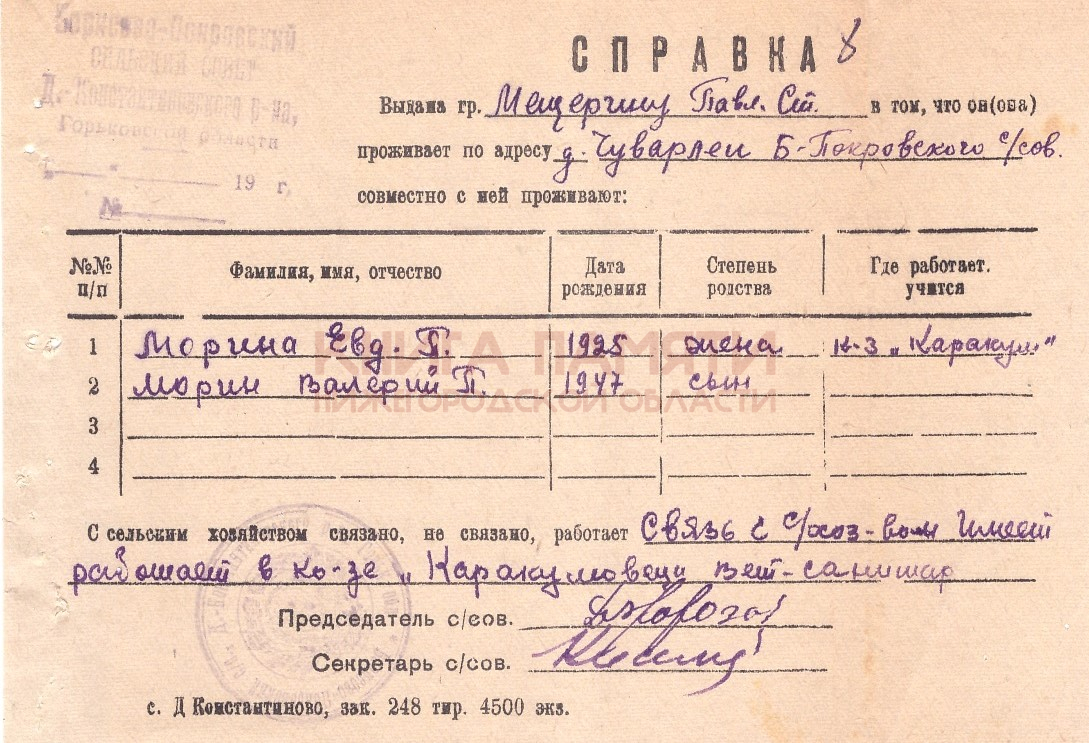 Борисово-Покровский
сельский совет
Д.-Константиновского р-на,
Горьковской области
"___" ________ 19 г.
№________
СПРАВКА 8
Выдана гр. Мещерину Павл. Ст. в том, что он(она)
проживает по адресу д. Чуварлеи Б-Покровского с/сов.
совместно с ней проживают:
№№ п/п Фамилия, имя, отчество Дата рождения Степень родства Где работает. учится
1 Морина Евд. П. 1925 жена к-з „Каракум"
2 Морин Валерий П. 1947 сын
3
4
КНИГА ПАМЯТИ
НИЖЕГОРОДСКОЙ ОБЛАСТИ
С сельским хозяйством связано, не связано, работает Связь с с/хоз-вом имеет
работает в ко-зе „Каракумовец вет-санитар
Председатель с/сов.
Секретарь с/сов.
с. Д Константиново, зак. 248 тир. 4500 экз.